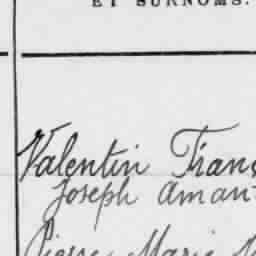 ET SURNOMS.
Valentin Fran
Joseph Aman
Pierre Marie